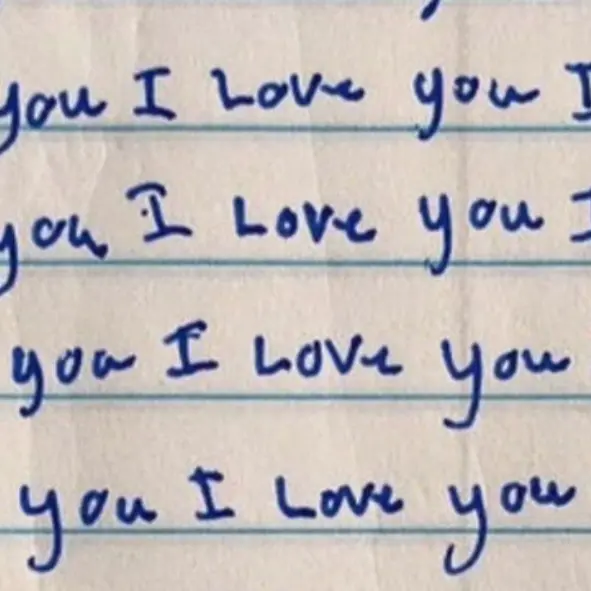 you I Love you I
you I Love you I
you I Love you
you I Love you